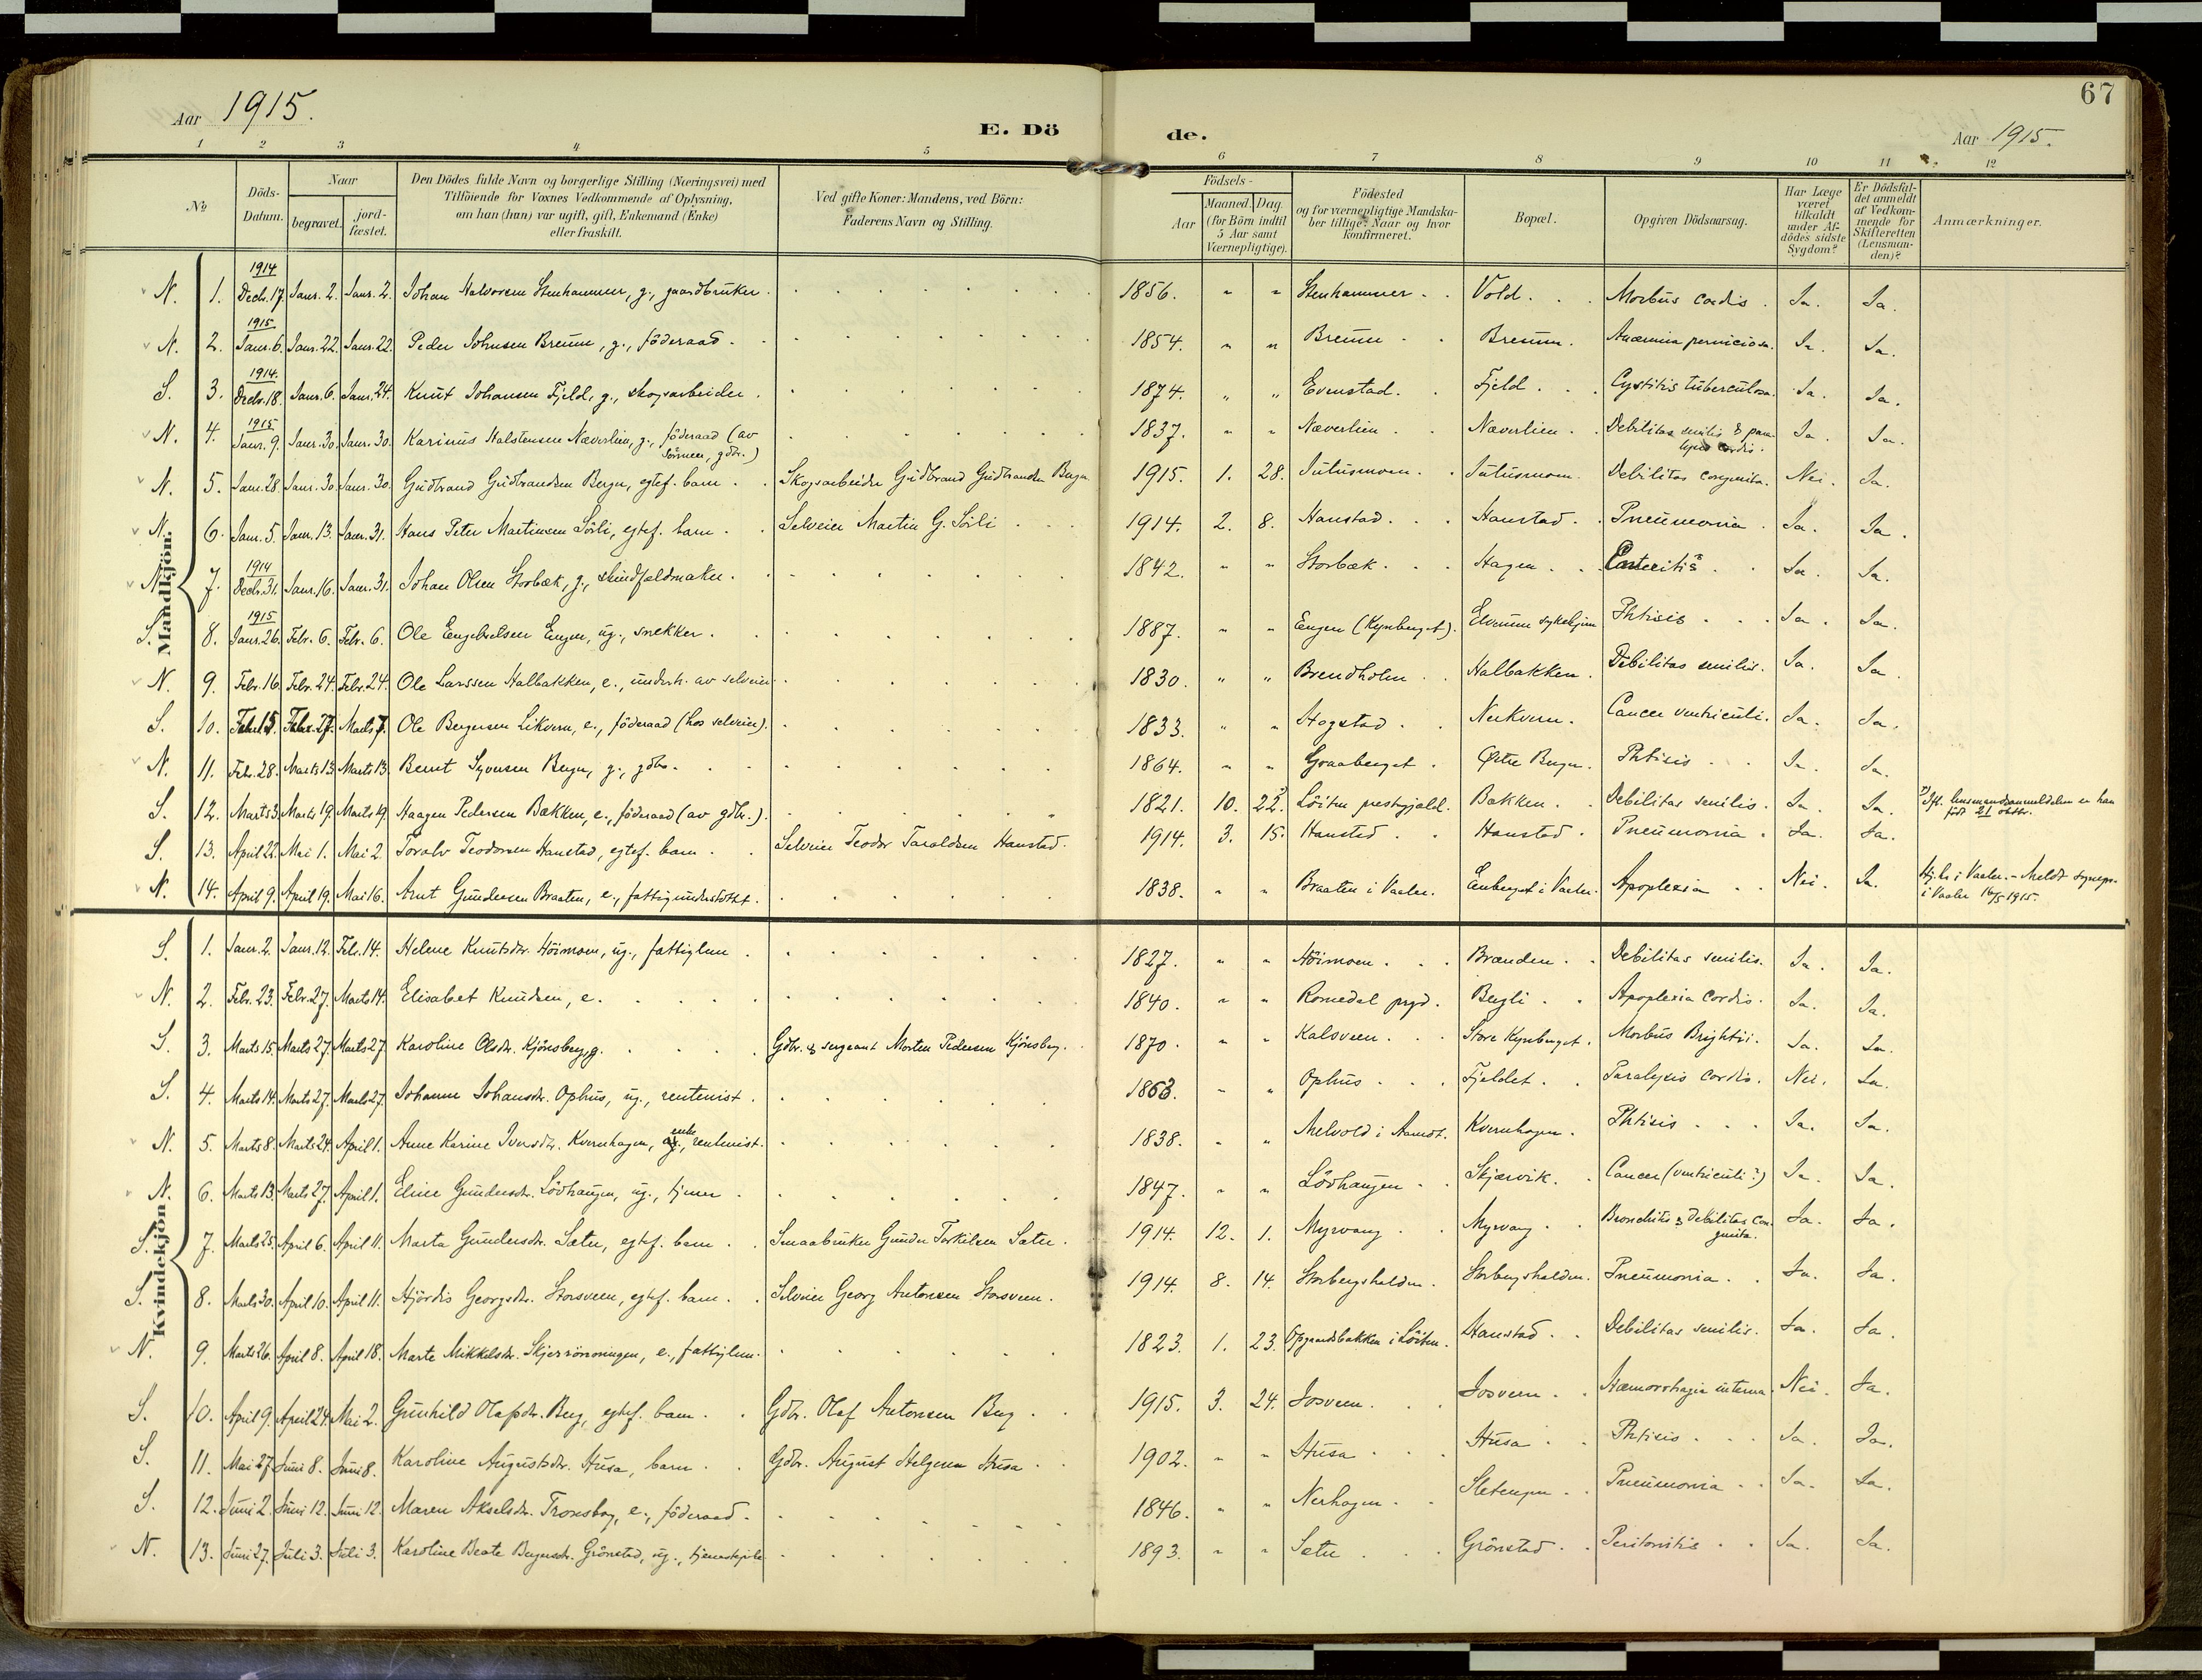 67
Aar 1915.
E. Dö de.
Aar 1915.
1 2 3 4 5 6 7 8 9 10 11 12
No
Döds-Datum.
Naar
begravet.
jord-fæstet.
Den Dödes fulde Navn og borgerlige Stilling (Næringsvei) med
Tilföiende for Voxnes Vedkommende af Oplysning,
om han (hun) var ugift, gift, Enkemand (Enke)
eller fraskilt.
Ved gifte Koner: Mandens, ved Börn:
Faderens Navn og Stilling.
Födsels-
Aar
Maaned. Dag.
(for Börn indtil
5 Aar samt
Værnepligtige).
Födested
og for værnepligtige Mandska-
ber tillige: Naar og hvor
konfirmeret.
Bopæl.
Opgiven Dödsaarsag.
Har Læge
været
tilkaldt
under Af-
dödes sidste
Sygdom?
Er Dödsfal-
det anmeldt
af Vedkom-
mende for
Skifteretten
(Lensman-
den)?
Anmærkninger.
Mandkjön.
N. 1. 1914 Decbr. 17. Janr. 2. Janr. 2. Johan Halvorsen Stenhammer, g., gaardbruker. 1856. " " Stenhammer. Vold. Morbus cordis. Ja. Ja.
N. 2. 1915 Janr. 6. Janr. 22. Janr. 22. Peder Johnsen Brenn, g., föderaad. 1854. " " Brenn. Anæmia perniciosa. Ja. Ja.
S. 3. 1914. Decbr. 18. Janr. 6. Janr. 24. Knut Johansen Fjeld, g., skogsarbeider. 1874. " " Evenstad. Fjeld. Cystitis tuberculosa. Ja. Ja.
N. 4. 1915 Janr. 9. Janr. 30. Janr. 30. Karinus Halstensen Næverlien, g., föderaad (av 1837. " " Næverlien. Næverlien. Debilitas senilis & para- Ja. Ja.
gdbr.) lysis cordis.
N. 5. Janr. 28. Janr. 30. Janr. 30. Gudbrand Gudbrandsen Bergn, egtef. barn. Skogsarbeider Gudbrand Gudbrandsen 1915. 1. 28. Jutusmoen. Jutusmoen. Debilitas congenita. Nei. Ja.
N. 6. Janr. 5. Janr. 13. Janr. 31. Hans Peter Martinsen Sörli, egtef. barn. Selveier Martin G. Sörli 1914. 2. 8. Hanstad. Hanstad. Pneumonia. Ja. Ja.
N. 7. 1914 Decbr. 31. Janr. 16. Janr. 31. Johan Olsen Storbæk, g., skindfeldmaker. 1842. " " Storbæk. Hagen. Enteritis. Ja. Ja.
S. 8. 1915 Janr. 26. Febr. 6. Febr. 6. Ole Engebretsen Engen, ug., snekker. 1887. " " Engen (Kynberget). Elverum sykehjem Phtisis. Ja. Ja.
N. 9. Febr. 16. Febr. 24. Febr. 24. Ole Larssen Halbakken, e., underh. av selveier. 1830. " " Brendholen. Halbakken. Debilitas senilis. Ja. Ja.
S. 10. Febr. 15. Febr. 27. Marts 7. Ole Bergersen Likvern, e., föderaad (hos selveier). 1833. " " Hogstad. Nerkvern. Cancer ventriculi. Ja. Ja.
N. 11. Febr. 28. Marts 13. Marts 13. Bernt Syversen g., gdbr. 1864. " " Graaberget. Östre Phtisis. Ja. Ja.
S. 12. Marts 3. Marts 19. Marts 19. Haagen Pedersen Bakken, e., föderaad (av gdbr.). 1821. 10. 22. Löiten prestegjæld. Bakken. Debilitas senilis. Ja. Ja. Ifl. lensmandsanmeldelsen er han
född 21 oktbr.
S. 13. April 22. Mai 1. Mai 2. Toralv Teodorsen Hanstad, egtef. barn. Selveier Teodor Taraldsen Hanstad. 1914. 3. 15. Hanstad. Hanstad. Pneumonia. Ja. Ja.
N. 14. April 9. April 19. Mai 16. Arnt Gundersen Braaten, e., fattigunderstöttet. 1838. " " Braaten i Vaaler. Enberget i Vaaler. Apoplexia. Nei. Ja. i Vaaler. - Meldt
i Vaaler 16/5 1915.
Kvindekjön
S. 1. Janr. 2. Janr. 12. Febr. 14. Helene Knutsdtr. Höimoen, ug., fattiglem. 1827. " " Höimoen. Brænden. Debilitas senilis. Ja. Ja.
N. 2. Febr. 23. Febr. 27. Marts 14. Elisabet Knudsen, e. 1840. " " Romedal prgd. Bergli. Apoplexia cordis. Ja. Ja.
S. 3. Marts 15. Marts 27. Marts 27. Karoline Olsdtr. Kjönsberg, g. Gdbr. & sergeant Morten Pedersen Kjönsberg. 1870. " " Kalsveen. Store Kynberget. Morbus Brightii. Ja. Ja.
S. 4. Marts 14. Marts 27. Marts 27. Johanne Johansdtr. Ophus, ug., rentenist. 1863. " " Ophus. Fjeldet. Paralysis cordis. Nei. Ja.
N. 5. Marts 8. Marts 24. April 1. Anne Karine Iversdtr. Kvernhagen, enke, rentenist. 1838. " " Melvold i Aamot. Kvernhagen. Phtisis. Ja. Ja.
N. 6. Marts 13. Marts 27. April 1. Eline Gundersdtr. Lövhaugen, ug., tjener. 1847. " " Lövhaugen. Skjærvik. Cancer (ventriculi?) Ja. Ja.
S. 7. Marts 25. April 6. April 11. Marta Gundersdtr. Sæter, egtef. barn. Smaabruker Gunder Torkilsen Sæter. 1914. 12. 1. Myrvang. Myrvang. Bronchitis & Debilitas con- Ja. Ja.
genita.
S. 8. Marts 30. April 10. April 11. Hjördis Georgsdtr. Storsveen, egtef. barn. Selveier Georg Antonsen Storsveen. 1914. 8. 14. Storbergshalden. Storbergshalden. Pneumonia. Ja. Ja.
N. 9. Marts 26. April 8. April 18. Marte Mikkelsdtr. e., fattiglem. 1823. 1. 23. Opgaardsbakken i Löiten. Hanstad. Debilitas senilis. Ja. Ja.
S. 10. April 9. April 24. Mai 2. Gunhild Olafsdtr. Berg, egtef. barn. Gdbr. Olaf Antonsen Berg. 1915. 3. 24. Josveen. Josveen. Hæmorrhagia interna. Nei. Ja.
S. 11. Mai 27. Juni 8. Juni 8. Karoline Augustsdtr. Husa, barn. Gdbr. August Helgesen Husa. 1902. " " Husa. Husa. Phtisis. Ja. Ja.
S. 12. Juni 2. Juni 12. Juni 12. Maren Akselsdtr. Tronsbog, e., föderaad. 1846. " " Nerhagen. Sletengen. Pneumonia. Ja. Ja.
N. 13. Juni 27. Juli 3. Juli 3. Karoline Beate Bergersdtr. Grönstad, ug., tjenestepike. 1893. " " Sæter. Grönstad. Peritonitis. Ja. Ja.